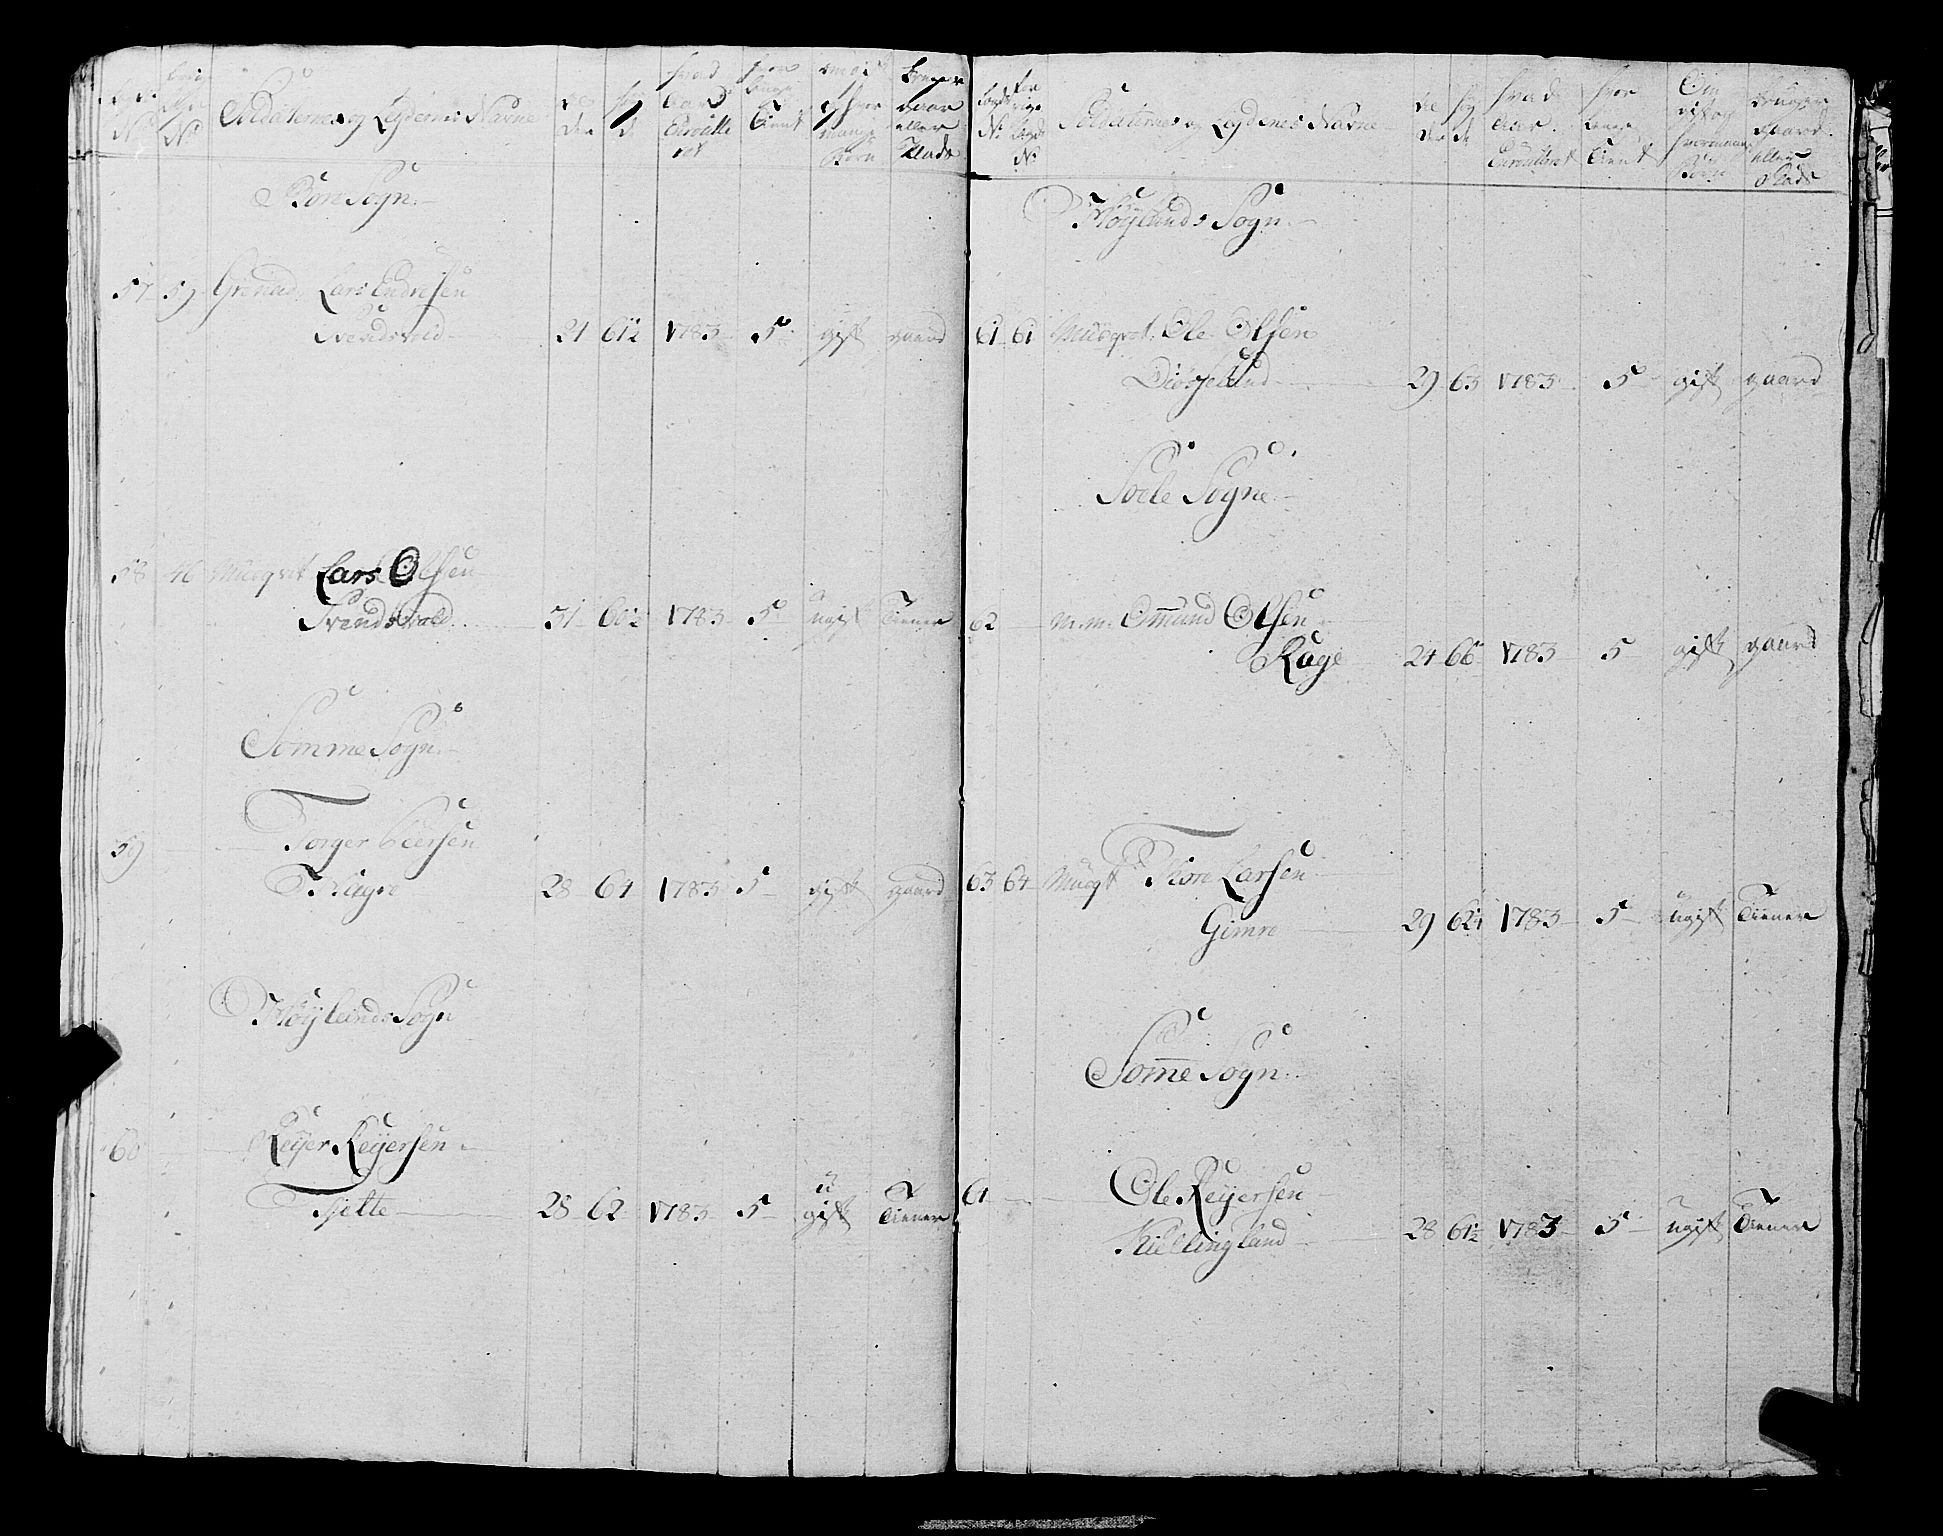 Soldaternes og Lægdernes Navne
Hvad Aar Enroulleret
Tient
Bruger Gaar eller Plads
Sogn.
57 59 Grenad. Lars Endresen
Svendsvold 24 61½ 1783 5 gift gaard
58 46 Musqvet Lars Olsen
Svendsvold 31 60½ 1783 5 ugift Tiener
Somme Sogn.
59 Torger Peersen
28 64 1783 5 gift gaard
Høylands Sogn
60 Reijer Reijersen
Tjelte 28 62 1783 5 ugift Tiener
Soldaternes og Lægdernes Navne
Hvad Aar Enroulleret
Hvor Længe Tient
Om gift og hvormange Børn
Bruger gaard eller Plads
Høylands Sogn.
61 61 Musqvet. Ole Olsen
29 63 1783 5 gift gaard
Soele Sogne.
62 M:m: Omund Olsen
Rage 24 66 1783 5 gift gaard
63 64 Musqt Thore Larsen
Gimre 29 62¼ 1783 5 ugift Tiener
Some Sogn.
Ole Reijersen
Kiellingland 28 61½ 1783 5 ugift Tiener